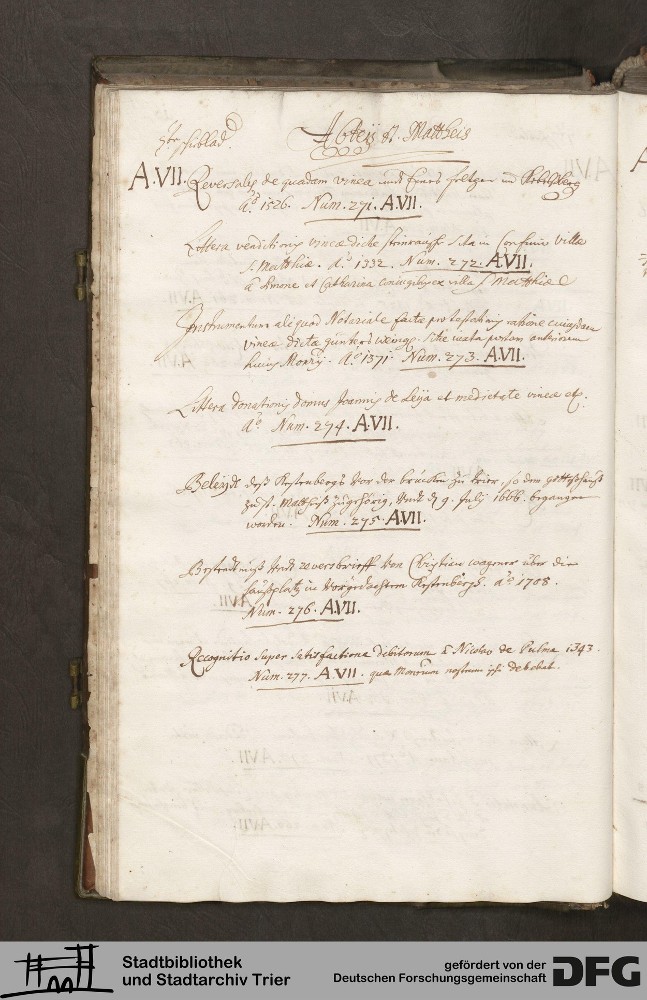 7br schublad.
Abteÿ St. Mattheis
A.VII. Reversales de quadam vinea und eines
aō 1526. Num. 271. A.VII.
Littera venditionis vineæ dictæ sita in Confinio villæ
s. Matthiæ. aō 1332. Num. 272. A.VII.
à Simone et Catharina coniugibus ex villa s. Matthiæ
Instrumentum aliquod Notariale factæ protestationis ratione cuiusdam
vineæ dictæ sitæ iuxta portam anteriorem
huius Monrÿ. Aō 1371. Num. 273. A.VII.
Littera donationis domus Joannis de Leÿa et medietate vineæ etc.
aō. Num. 274. A.VII.
Beleÿdt deß Kestenbergs vor der brücken zu trier, so dem gotteßhauß
zu St. Mattheiß zugehörig, undt d 9. Julÿ 1666. begangen
worden. Num. 275. A.VII.
Bestendtnuß undt reversbrieff von Christian wagener über die
haußplatz in vorgedachtem Kestenbergh. aō 1708.
Num. 276. A.VII.
Recognitio super satisfactione debitorum à Nicolao de Pulma 1343.
Num. 277. A.VII. quæ Monrium nostrum ipsi debebat.
Stadtbibliothek
und Stadtarchiv Trier
gefördert von der
Deutschen Forschungsgemeinschaft
DFG